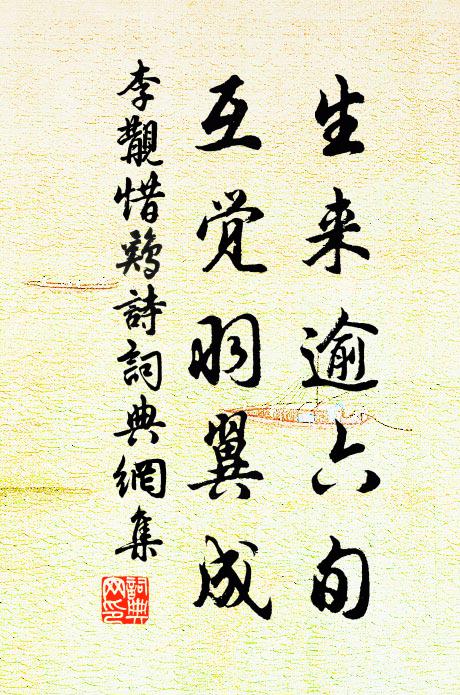 生来逾六旬
互觉羽翼成
李覯惜鷄詩詞典網集
詞典網印